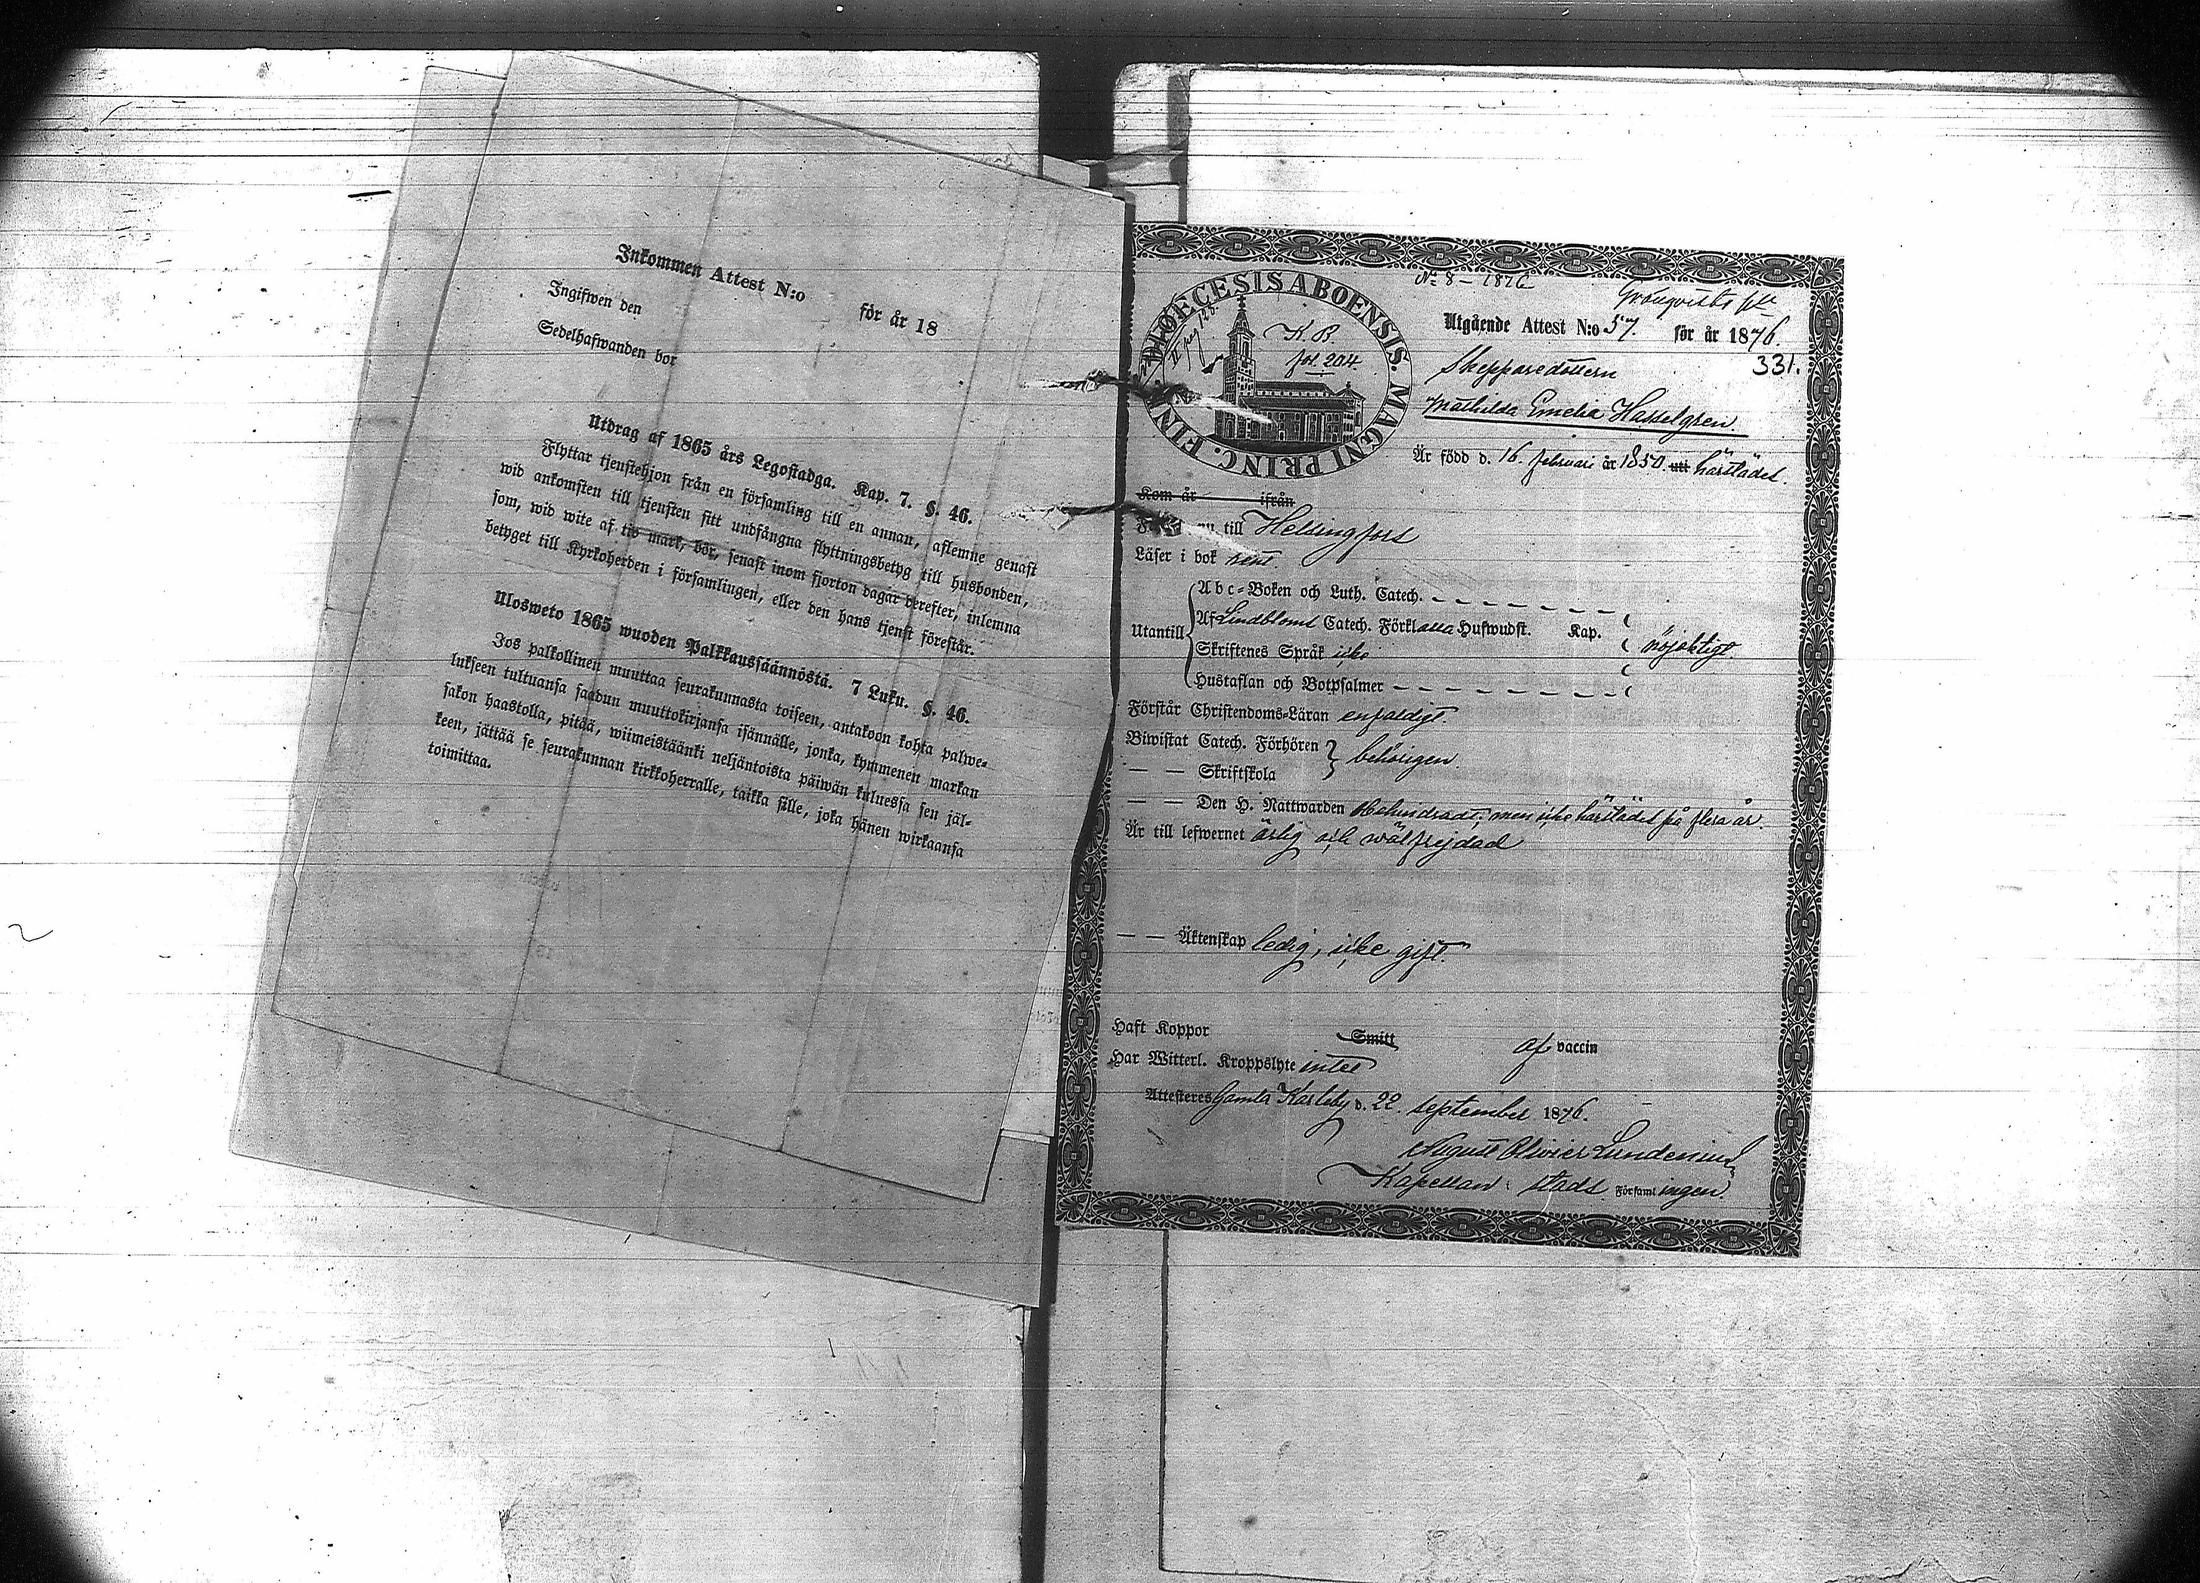 Inkommen Attest N:o för år 18
Ingifwen den
Sedelhafwanden bor
Utdrag af 1865 års Legostadga. Kap. 7. §. 46.
Flyttar tjenstehjon från en församling till en annan, aflemne genast
wid ankomsten till tjensten sitt undfångna flyttningsbetyg till husbonden,
som, wid wite af tio mark, bör, senast inom fjorton dagar derefter, inlemna
betyget till Kyrkoherden i församlingen, eller den hans tjenst förestår.
Ulosweto 1865 wuoden Palkkaussäännöstä. 7 Luku. §. 46.
Jos palkollinen muuttaa seurakunnasta toiseen, antakoon kohta palwe-
lukseen tultuansa saadun muuttokirjansa isännälle, jonka, kymmenen markan
sakon haastolla, pitää, wiimeistäänki neljäntoista päiwän kuluessa sen jäl-
keen, jättää se seurakunnan kirkkoherralle, taikka sille, joka hänen wirkaansa
toimittaa.
DIOECESIS ABOENSIS. MAGNI PRINC. FINL.
II pag 128.
K. B.
fol. 204.
N:o 8 – 1876
Utgående Attest N:o 57. för år 1876.
331.
Skepparedottern
Mathilda Emelia Hasselgren
Är född d. 16. februari år 1850. utt härstädes.
Kom år ifrån
nu till Helsingfors
Läser i bok rent.
Utantill
Abc-Boken och Luth. Catech.
Af Lindbloms Catech. Förklatta Hufwudst. Kap.
Skriftenes Språk icke
Hustaflan och Botpsalmer
nöjaktigt.
Förstår Christendoms-Läran enfaldigt.
Biwistat Catech. Förhören
— — Skriftskola
behörigen.
— — Den H. Nattwarden obehindradt, men icke härstädes på flera år.
Är till lefwernet ärlig och wälfrejdad
— — Äktenskap ledig, icke gift.
Haft Koppor Smitt af vaccin
Har Witterl. Kroppslyte intet
Attesteres Gamla Karleby d. 22. september 1876.
August Oliwier Lundenius
Kapellan i stads Församlingen.